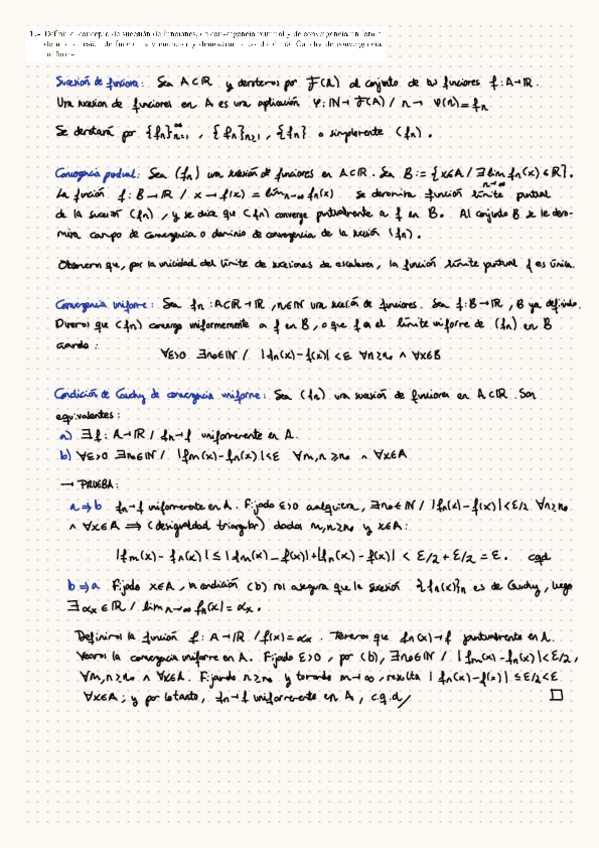 1.- Definir el concepto de sucesión de funciones, de convergencia puntual y de convergencia uniforme
de una sucesión de funciones. Enunciar y demostrar la condición de Cauchy de convergencia
uniforme.
Sucesión de funciones: Sea A⊂ℝ y denotemos por F(A) al conjunto de las funciones f: A→ℝ.
Una sucesión de funciones en A es una aplicación φ: ℕ→F(A) / n→ φ(n)=fₙ
Se denotará por {fₙ}ₙ₌₁^∞, {fₙ}ₙ≥₁, {fₙ} o simplemente (fₙ).
Convergencia puntual: Sea (fₙ) una sucesión de funciones en A⊂ℝ. Sea B := {x∈A / ∃ lim n→∞ fₙ(x) ∈ ℝ}.
La función f: B→ℝ / x→f(x) = lim n→∞ fₙ(x) se denomina función límite puntual
de la sucesión (fₙ), y se dice que (fₙ) converge puntualmente a f en B. Al conjunto B se le deno-
mina campo de convergencia o dominio de convergencia de la sucesión (fₙ).
Observemos que, por la unicidad del límite de sucesiones de escalares, la función límite puntual f es única.
Convergencia uniforme: Sea fₙ: A⊂ℝ→ℝ, n∈ℕ una sucesión de funciones. Sea f: B→ℝ, B ya definido.
Diremos que (fₙ) converge uniformemente a f en B, o que f es el límite uniforme de (fₙ) en B
cuando:
∀ε>0 ∃n₀∈ℕ / |fₙ(x)-f(x)|<ε ∀n≥n₀ ∧ ∀x∈B
Condición de Cauchy de convergencia uniforme: Sea (fₙ) una sucesión de funciones en A⊂ℝ. Son
equivalentes:
a) ∃f: A→ℝ / fₙ→f uniformemente en A.
b) ∀ε>0 ∃n₀∈ℕ / |fₘ(x)-fₙ(x)|<ε ∀m,n≥n₀ ∧ ∀x∈A
→ PRUEBA:
a⇒b fₙ→f uniformemente en A. Fijado ε>0 cualquiera, ∃n₀∈ℕ / |fₙ(x)-f(x)|<ε/2 ∀n≥n₀
∧ ∀x∈A ⟹ (desigualdad triangular) dados m,n≥n₀ y x∈A:
|fₘ(x)-fₙ(x)| ≤ |fₘ(x)-f(x)|+|fₙ(x)-f(x)| < ε/2 + ε/2 = ε. cqd
b⇒a Fijado x∈A, la condición (b) nos asegura que la sucesión {fₙ(x)}ₙ es de Cauchy, luego
∃αₓ∈ℝ / lim n→∞ fₙ(x)=αₓ.
Definimos la función f: A→ℝ / f(x)=αₓ. Tenemos que fₙ(x)→f puntualmente en A.
Veamos la convergencia uniforme en A. Fijado ε>0, por (b), ∃n₀∈ℕ / |fₘ(x)-fₙ(x)|<ε/2,
∀m,n≥n₀ ∧ ∀x∈A. Fijando n≥n₀ y tomando m→∞, resulta |fₙ(x)-f(x)| ≤ε/2<ε
∀x∈A; y por lo tanto, fₙ→f uniformemente en A, c.q.d/ □